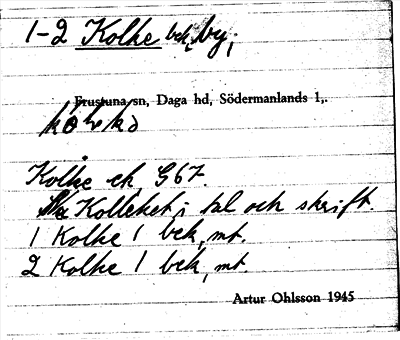 1-2 Kolke bek, by;
Frustuna sn, Daga hd, Södermanlands l,.
Kolke ek G67.
Kolleket i tal och skrift.
1 Kolke / bek, mt.
2 Kolke / bek, mt.
Artur Ohlsson 1945